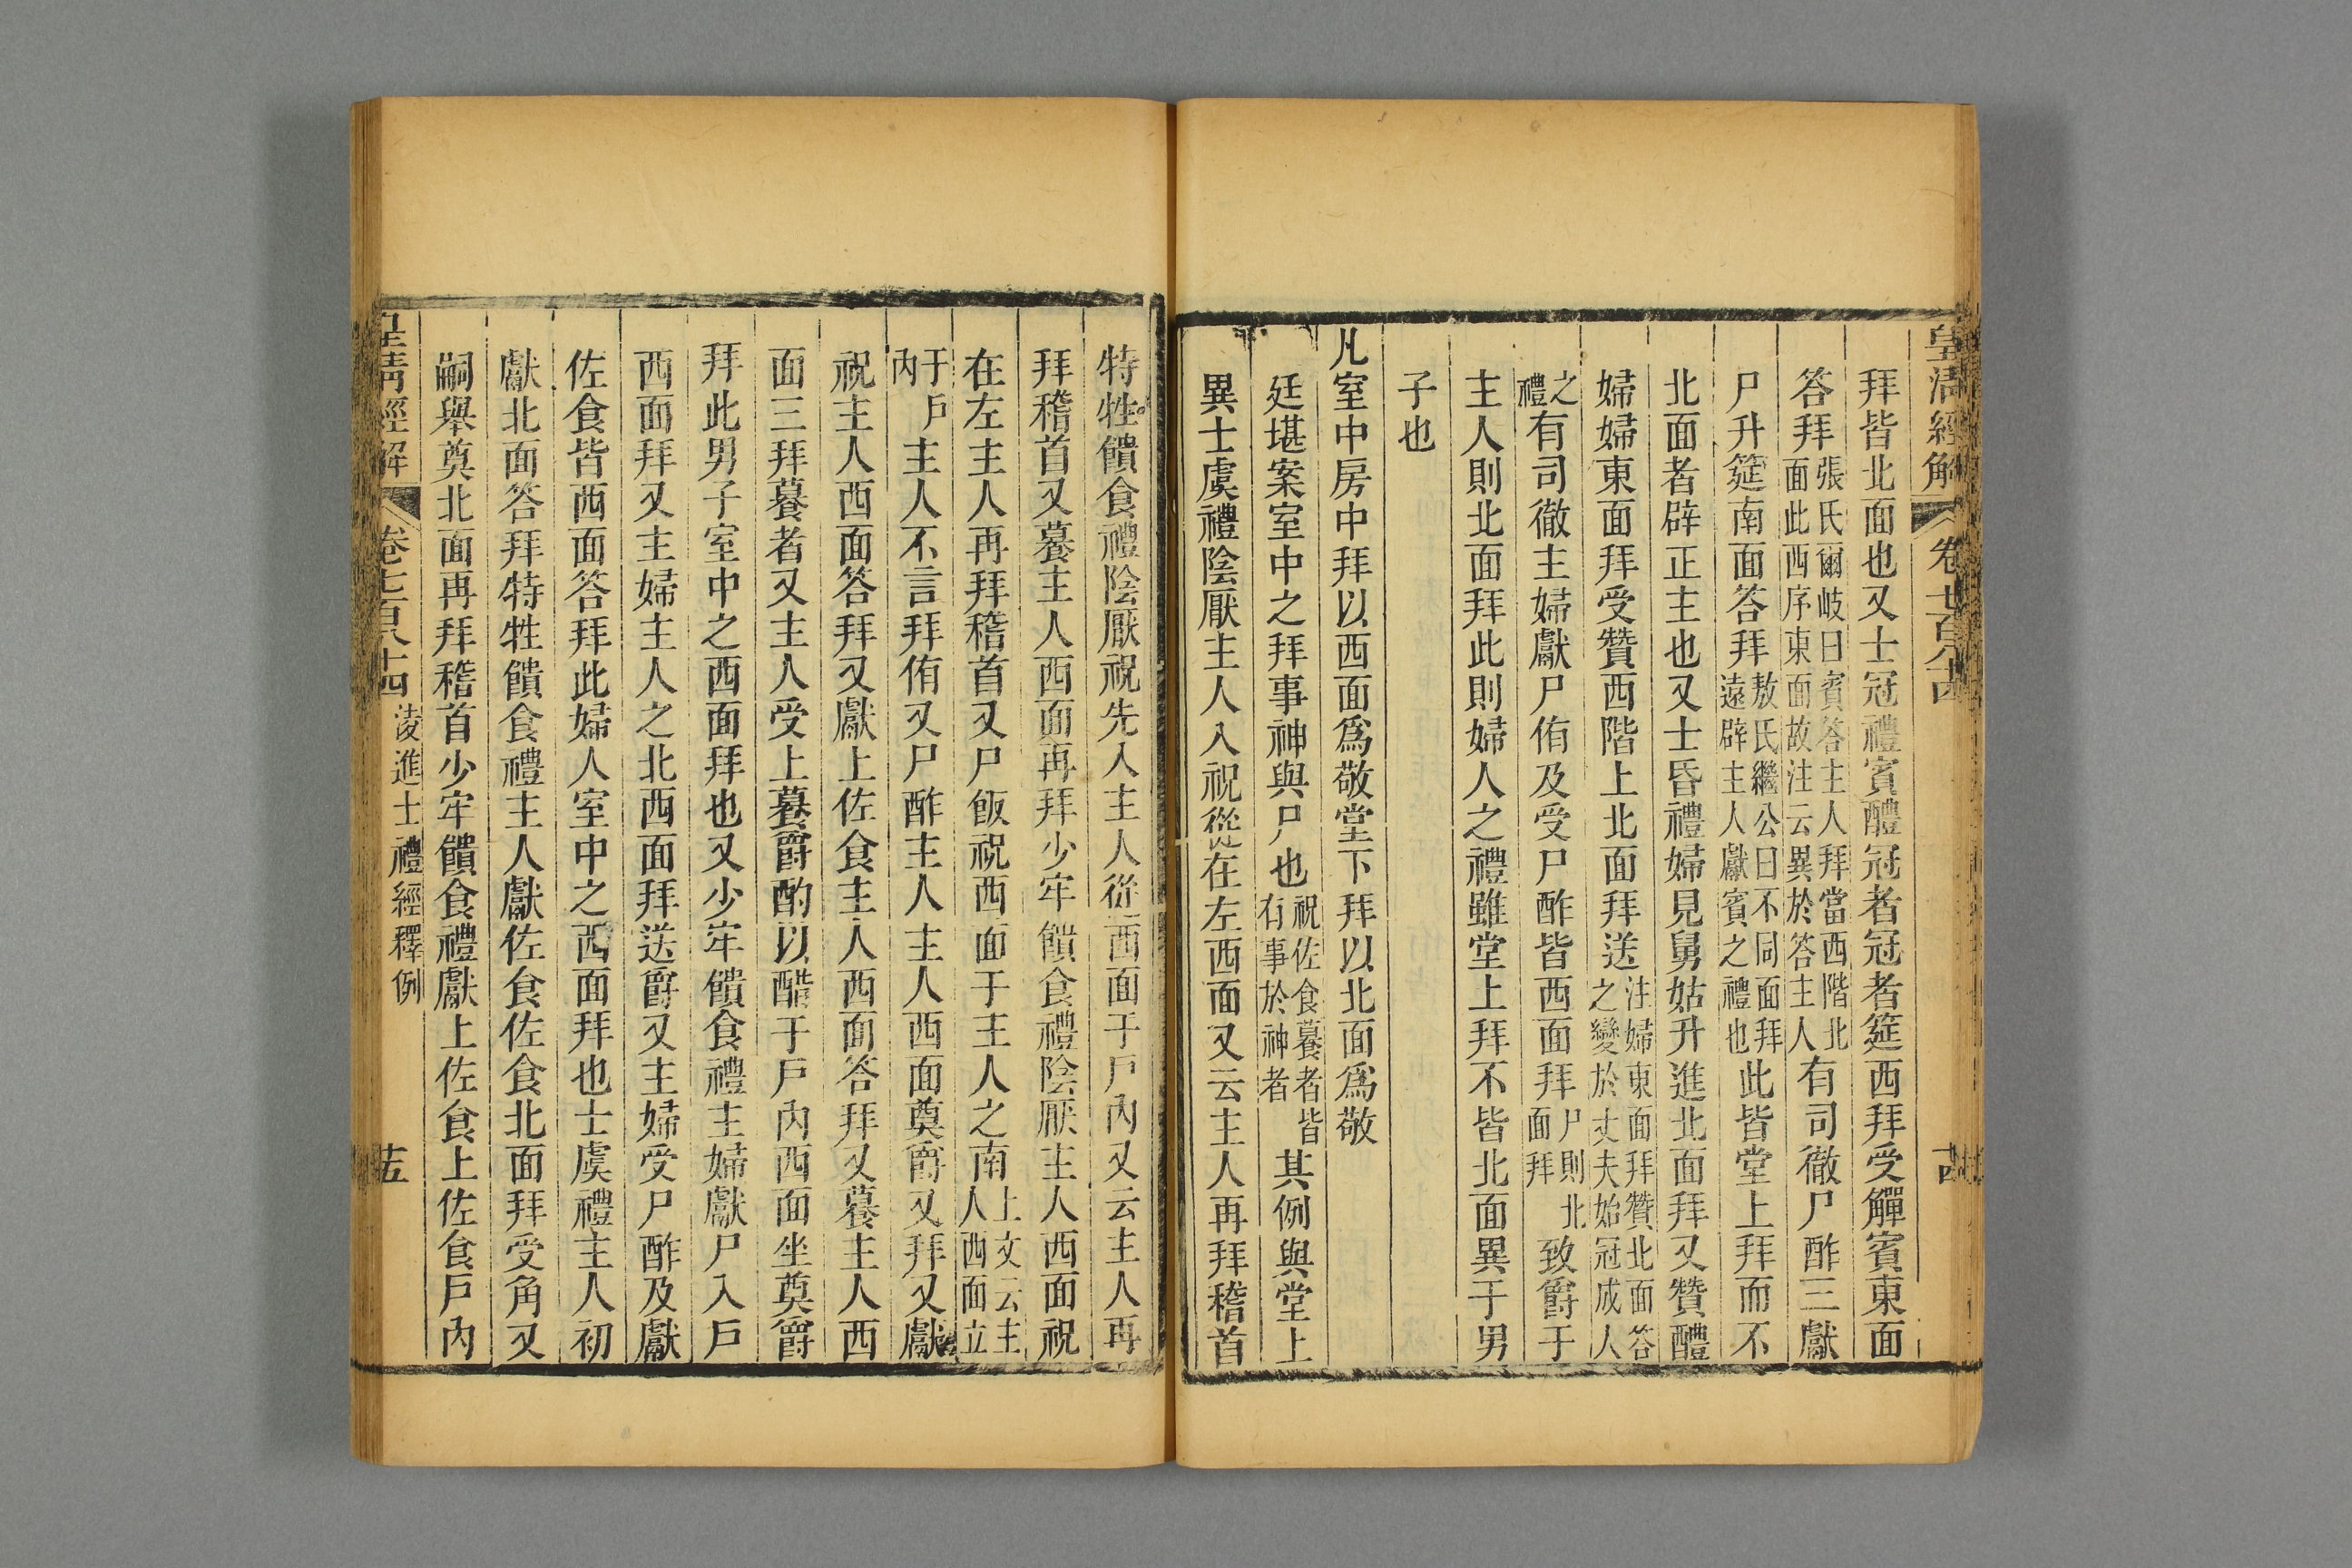 皇清經解 卷七百八十四 十四
拜皆北面也又士冠禮賓醴冠者冠者筵西拜受觶賓東面
答拜張氏爾岐曰賓答主人拜當西階北面此西序東面故注云異於答主人有司徹尸酢三獻
尸升筵南面答拜敖氏繼公曰不同面拜遠辟主人獻賓之禮也此皆堂上拜而不
北面者辟正主也又士昏禮婦見舅姑升進北面拜又贊醴
婦婦東面拜受贊西階上北面拜送注婦東面拜贊北面答之變於丈夫始冠成人
之禮有司徹主婦獻尸侑及受尸酢皆西面拜尸則北面拜致爵于
主人則北面拜此則婦人之禮雖堂上拜不皆北面異于男
子也
凡室中房中拜以西面爲敬堂下拜以北面爲敬
廷堪案室中之拜事神與尸也祝佐食養者皆有事於神者其例與堂上
異士虞禮陰厭主人入祝從在左西面又云主人再拜稽首
特牲饋食禮陰厭祝先入主人從西面于戶內又云主人再
拜稽首又養主人西面再拜少牢饋食禮陰厭主人西面祝
在左主人再拜稽首又尸飯祝西面于主人之南上文云主人西面立
于戶內主人不言拜侑又尸酢主人主人西面奠爵又拜又獻
祝主人西面答拜又獻上佐食主人西面答拜又養主人西
面三拜養者又主人受上養爵酌以醋于戶內西面坐奠爵
拜此男子室中之西面拜也又少牢饋食禮主婦獻尸入戶
西面拜又主婦主人之北西面拜送爵又主婦受尸酢及獻
佐食皆西面答拜此婦人室中之西面拜也士虞禮主人初
獻北面答拜特牲饋食禮主人獻佐食佐食北面拜受角又
嗣舉奠北面再拜稽首少牢饋食禮獻上佐食上佐食戶內
皇清經解 卷七百八十四 淩進士禮經釋例 十五